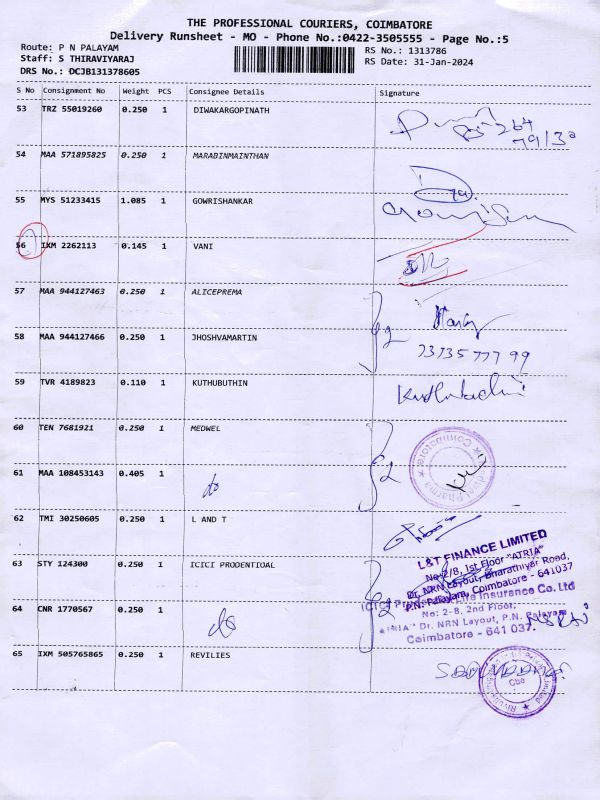 THE PROFESSIONAL COURIERS, COIMBATORE
Delivery Runsheet - MO - Phone No.:0422-3505555 - Page No.:5
Route: P N PALAYAM
Staff: S THIRAVIYARAJ
DRS No.: DCJB131378605
RS No.: 1313786
RS Date: 31-Jan-2024
S No Consignment No Weight PCS Consignee Details Signature
53 TRZ 55019260 0.250 1 DIWAKARGOPINATH
54 MAA 571895825 0.250 1 MARABINMAINTHAN
55 MYS 51233415 1.085 1 GOWRISHANKAR
56 IXM 2262113 0.145 1 VANI
57 MAA 944127463 0.250 1 ALICEPREMA
58 MAA 944127466 0.250 1 JHOSHVAMARTIN
73735 777 99
59 TVR 4189823 0.110 1 KUTHUBUTHIN
60 TEN 7681921 0.250 1 MEDWEL
61 MAA 108453143 0.405 1 do
62 TMI 30250605 0.250 1 L AND T
L&T FINANCE LIMITED
No:2/8, 1st Floor "ATRIA"
Dr. NRN Layout, Bharathiyar Road,
P.N. Palayam, Coimbatore - 641037
63 STY 124300 0.250 1 ICICI PRODENTIOAL
Insurance Co.Ltd
No: 2-8, 2nd Floor,
Dr. NRN Layout, P.N. Palayam
Coimbatore - 641 037.
64 CNR 1770567 0.250 1 do
65 IXM 505765865 0.250 1 REVILIES
Cbe